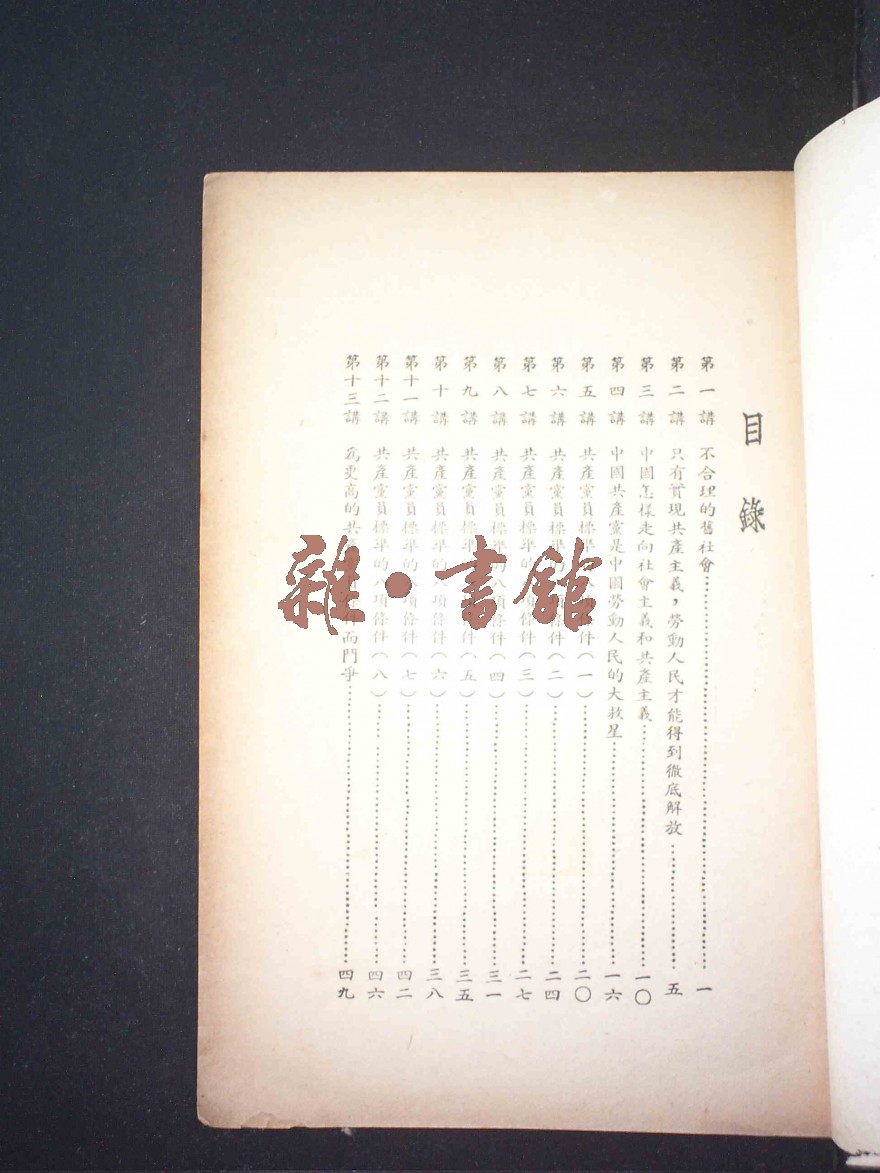 目錄
第一講 不合理的舊社會……一
第二講 只有實現共產主義，勞動人民才能得到徹底解放……五
第三講 中國怎樣走向社會主義和共產主義……一〇
第四講 中國共產黨是中國勞動人民的大救星……一六
第五講 共產黨員標準的八項條件（一）……二〇
第六講 共產黨員標準的八項條件（二）……二四
第七講 共產黨員標準的八項條件（三）……二七
第八講 共產黨員標準的八項條件（四）……三一
第九講 共產黨員標準的八項條件（五）……三五
第十講 共產黨員標準的八項條件（六）……三八
第十一講 共產黨員標準的八項條件（七）……四二
第十二講 共產黨員標準的八項條件（八）……四六
第十三講 為更高的共產 而鬥爭……四九
雜·書館